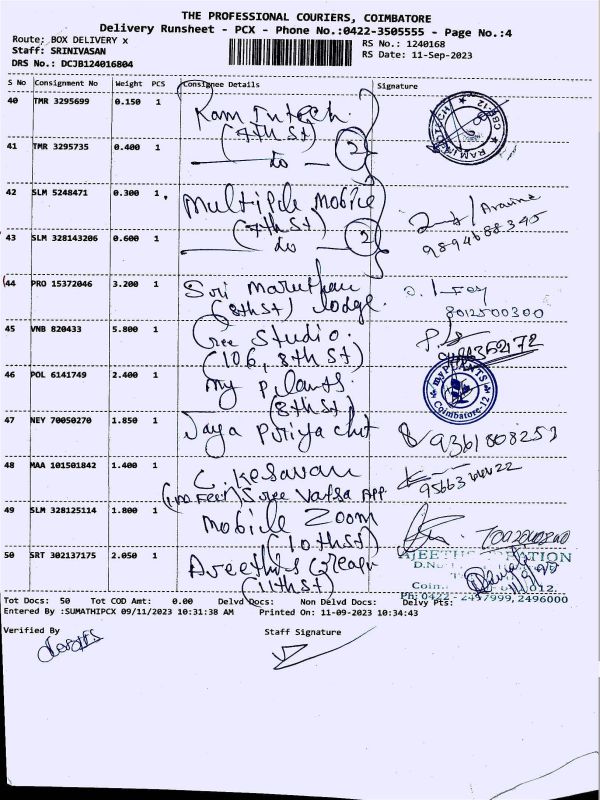 THE PROFESSIONAL COURIERS, COIMBATORE
Delivery Runsheet - PCX - Phone No.:0422-3505555 - Page No.:4
Route: BOX DELIVERY x
RS No.: 1240168
Staff: SRINIVASAN
RS Date: 11-Sep-2023
DRS No.: DCJB124016804
S No Consignment No Weight PCS Consignee Details Signature
40 TMR 3295699 0.150 1 Ram Intech
(7th St)
41 TMR 3295735 0.400 1 do 2
42 SLM 5248471 0.300 1 Multiple Mobile
(7th St)
Aravind
43 SLM 328143206 0.600 1 do 2
9894688345
44 PRO 15372046 3.200 1 Sri Maruthan
(8th St) lodge.
8012500300
45 VNB 820433 5.800 1 Cree Studio.
(106, 8th St)
46 POL 6141749 2.400 1 my plants.
(8th St)
my PLANTS
Coimbatore-12
47 NEY 70050270 1.850 1 Jaya Priya chit
9361808253
48 MAA 101501842 1.400 1 C. Kesavan
Sree Vatsa App
49 SLM 328125114 1.800 1 Mobile Zoom
(10th St)
50 SRT 302137175 2.050 1 Ajeeths Creation
(11th St)
AJEETHS CREATION
Ph: 0422 - 2497999, 2496000
Tot Docs: 50 Tot COD Amt: 0.00 Delvd Docs: Non Delvd Docs: Delvy Pts:
Entered By :SUMATHIPCX 09/11/2023 10:31:38 AM Printed On: 11-09-2023 10:34:43
Verified By
Staff Signature